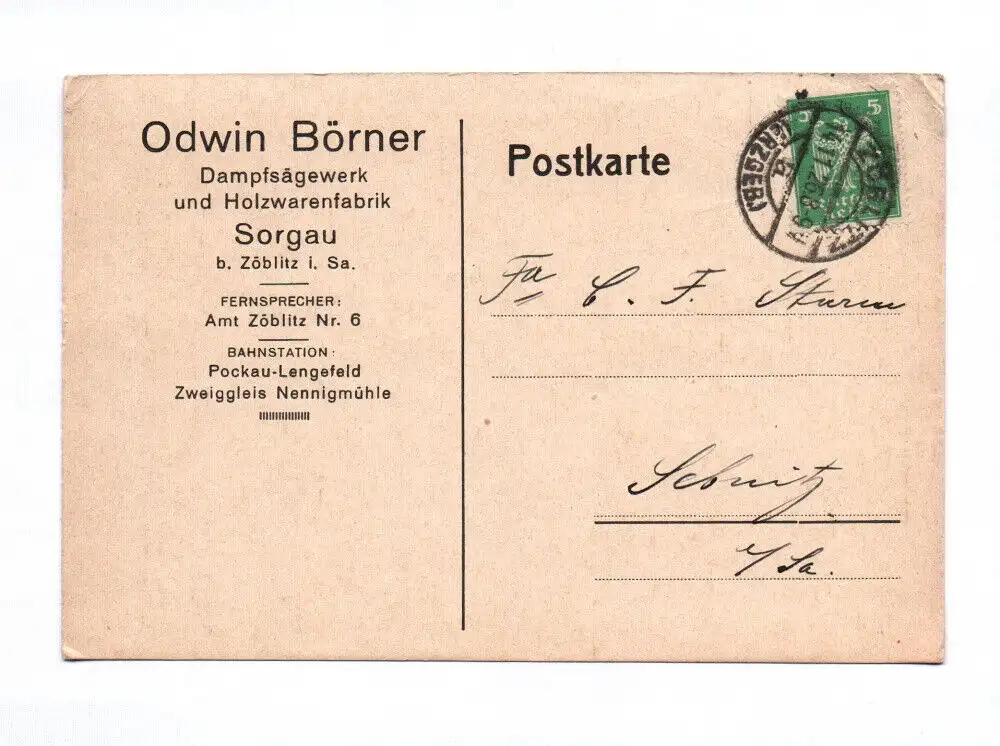 Odwin Börner
Dampfsägewerk
und Holzwarenfabrik
Sorgau
b. Zöblitz i. Sa.
FERNSPRECHER:
Amt Zöblitz Nr. 6
BAHNSTATION:
Pockau-Lengefeld
Zweiggleis Nennigmühle
Postkarte
5
5
(ERZGEB.)
Fa C. F. Sturm
Sebnitz
i/Sa.